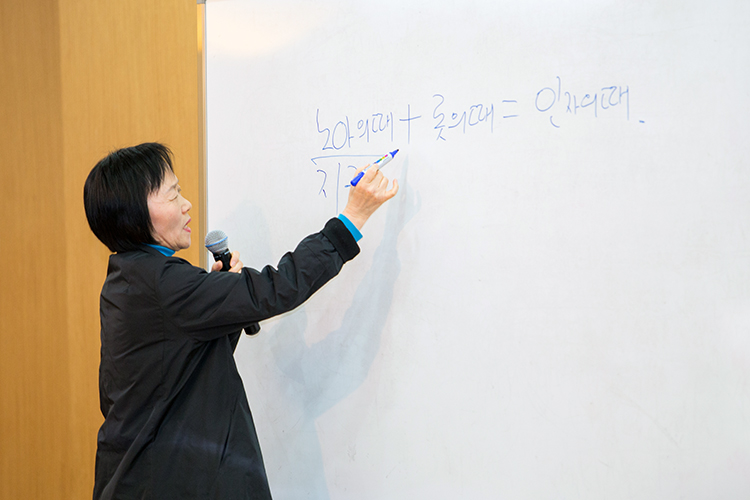 노아의때 + 롯의때 = 인자의때.